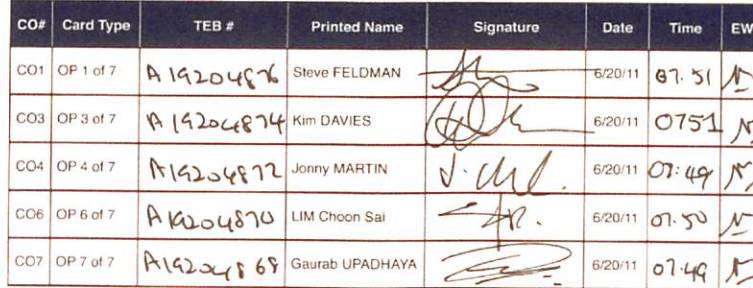 CO# Card Type TEB # Printed Name Signature Date Time EW
CO1 OP 1 of 7 A19204876 Steve FELDMAN 6/20/11 07:51 N
CO3 OP 3 of 7 A19204874 Kim DAVIES 6/20/11 0751 N
CO4 OP 4 of 7 A19204872 Jonny MARTIN 6/20/11 07:49 N
CO6 OP 6 of 7 A19204870 LIM Choon Sai 6/20/11 07.50 N
CO7 OP 7 of 7 A19204868 Gaurab UPADHAYA 6/20/11 07.49 N